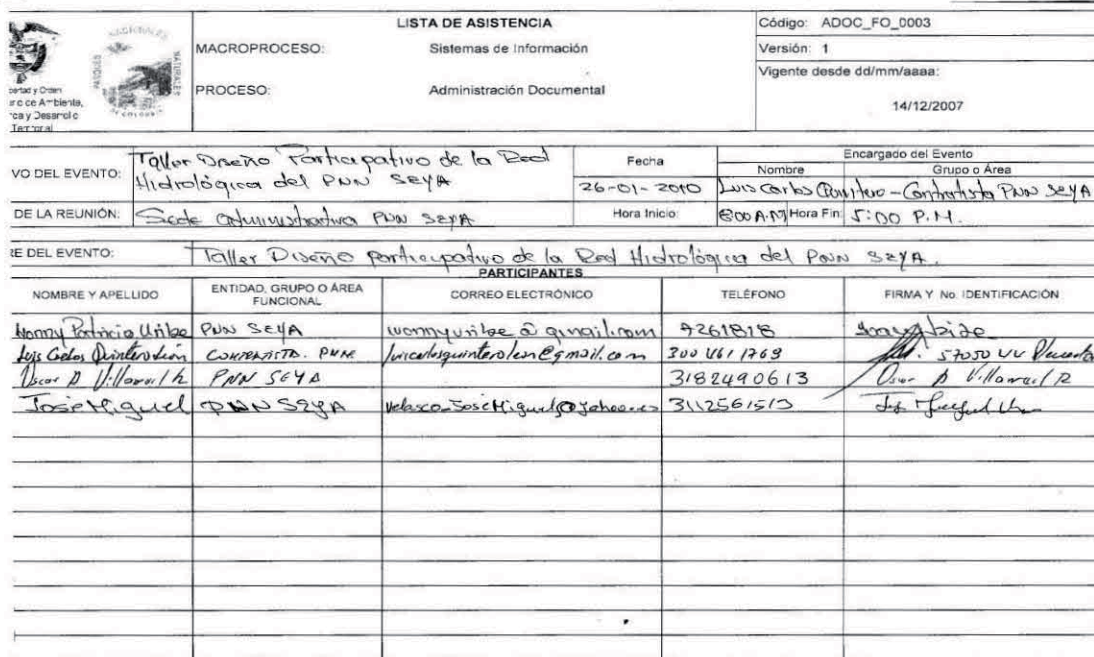 LISTA DE ASISTENCIA
Código: ADOC_FO_0003
MACROPROCESO: Sistemas de Información
Versión: 1
Vigente desde dd/mm/aaaa:
PROCESO: Administración Documental
14/12/2007
PARQUES NACIONALES NATURALES
DE COLOMBIA
VO DEL EVENTO: Taller Diseño Participativo de la Red
Hidrológica del PNN SEYA
Fecha
26-01-2010
Encargado del Evento
Nombre Grupo o Área
Luis Carlos Quintero - Contratista PNN SeyA
DE LA REUNIÓN: Sede administrativa PNN SEYA
Hora Inicio: 8:00 A.M Hora Fin: 5:00 P.M.
RE DEL EVENTO: Taller Diseño Participativo de la Red Hidrológica del PNN SEYA.
PARTICIPANTES
NOMBRE Y APELLIDO ENTIDAD, GRUPO O ÁREA FUNCIONAL CORREO ELECTRÓNICO TELÉFONO FIRMA Y No. IDENTIFICACIÓN
Wonny Patricia Uribe PNN SEYA wonnyuribe@gmail.com 9261818
Luis Carlos Quintero León CONTRATISTA. PNN luiscarlosquinteroleon@gmail.com 300 4611769
Oscar D Villareal R PNN SEYA 3182490613 Oscar D Villareal R
José Miguel PNN SEYA velasco_JoseMiguel@yahoo.es 3112561513